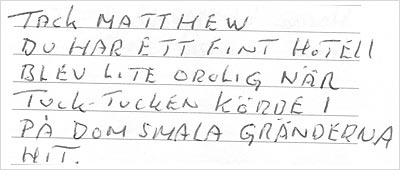 TACK MATTHEW
DU HAR ETT FINT HOTELL
BLEV LITE OROLIG NÄR
TUCK-TUCKEN KÖRDE I
PÅ DOM SMALA GRÄNDERNA
HIT.